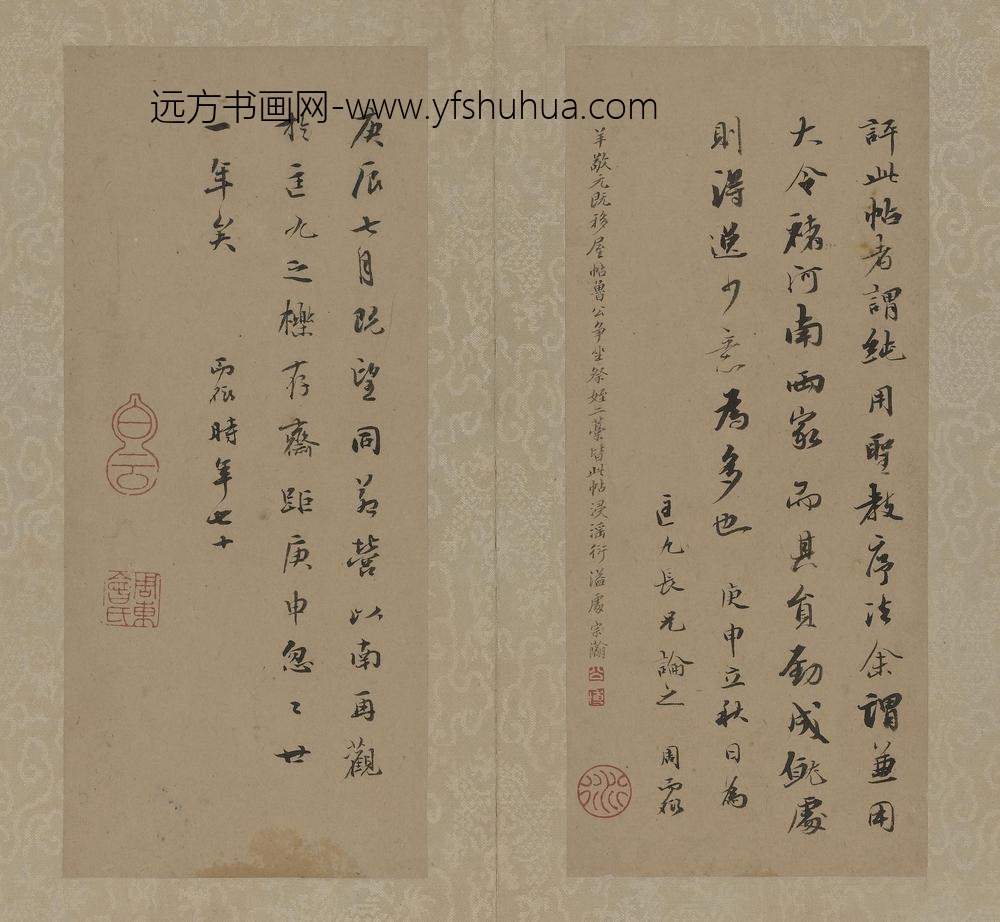 远方书画网-www.yfshuhua.com
評此帖者謂純用聖教序法余謂兼用
大令褚河南兩家而其負勁成㒵處
則得逸少意為多也 庚申立秋日為
匡九長兄論之 周霢
羊敬元既移屋帖魯公争坐祭姪二藁皆此帖浸淫衍溢處 宗瀚
庚辰七月既望同益營以南再觀
於匡九之櫟存齋距庚申忽〻廿
一年矣 霢時年七十
白云
周東會氏